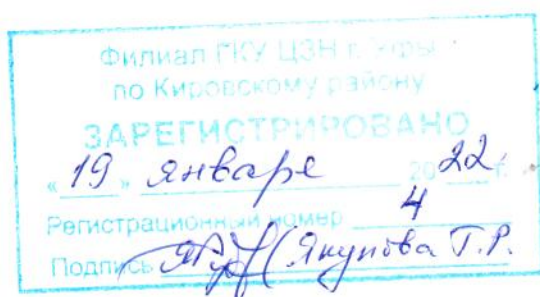 Филиал ГКУ ЦЗН г. Уфы
по Кировскому району
ЗАРЕГИСТРИРОВАНО
«19» января 2022 г.
Регистрационный номер 4
Подпись (Якупова Т.Р.